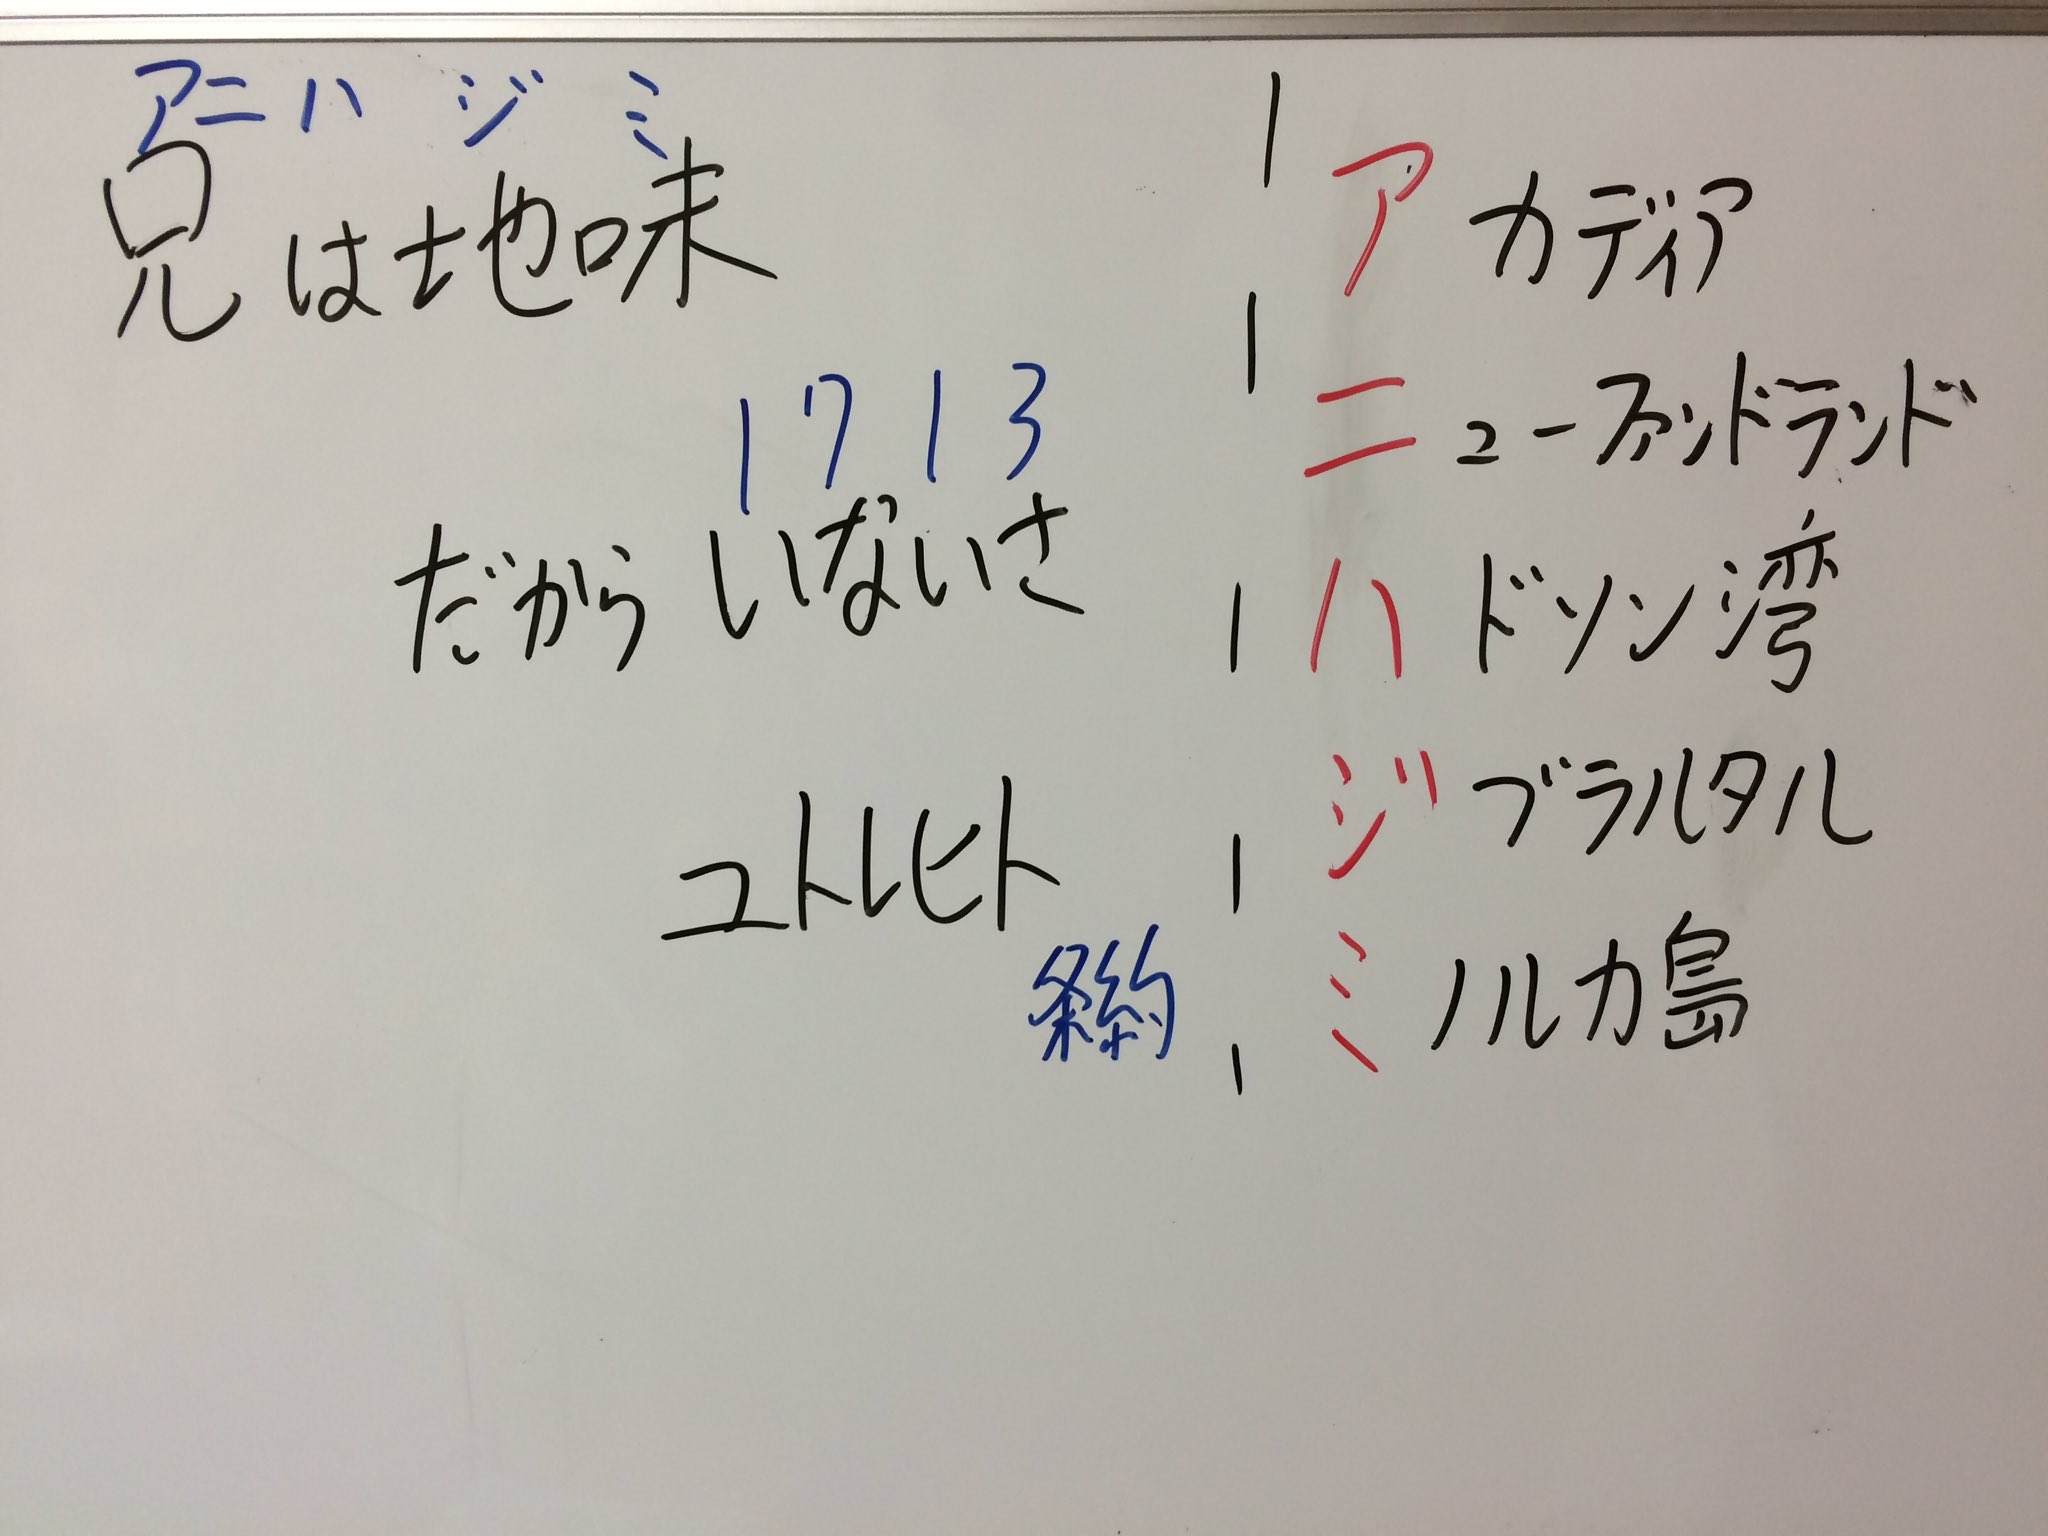 アニハジミ
兄は地味
1713
だからいないさ
ユトレヒト
条約
アカディア
ニューファンドランド
ハドソン湾
ジブラルタル
ミノルカ島